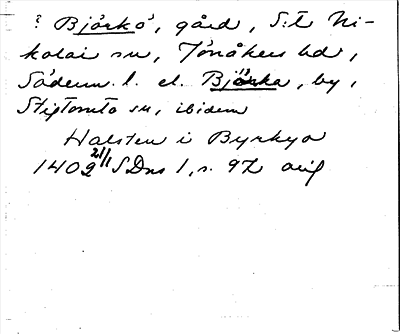 ? Björkö, gård, S:t Ni-
kolai sn, Jönåkers hd,
Söderm. l. el. Björka, by,
Stigtomta sn, ibidem
Halsten i Byrkyo
1402 21/1 SDns 1, s. 92 orig